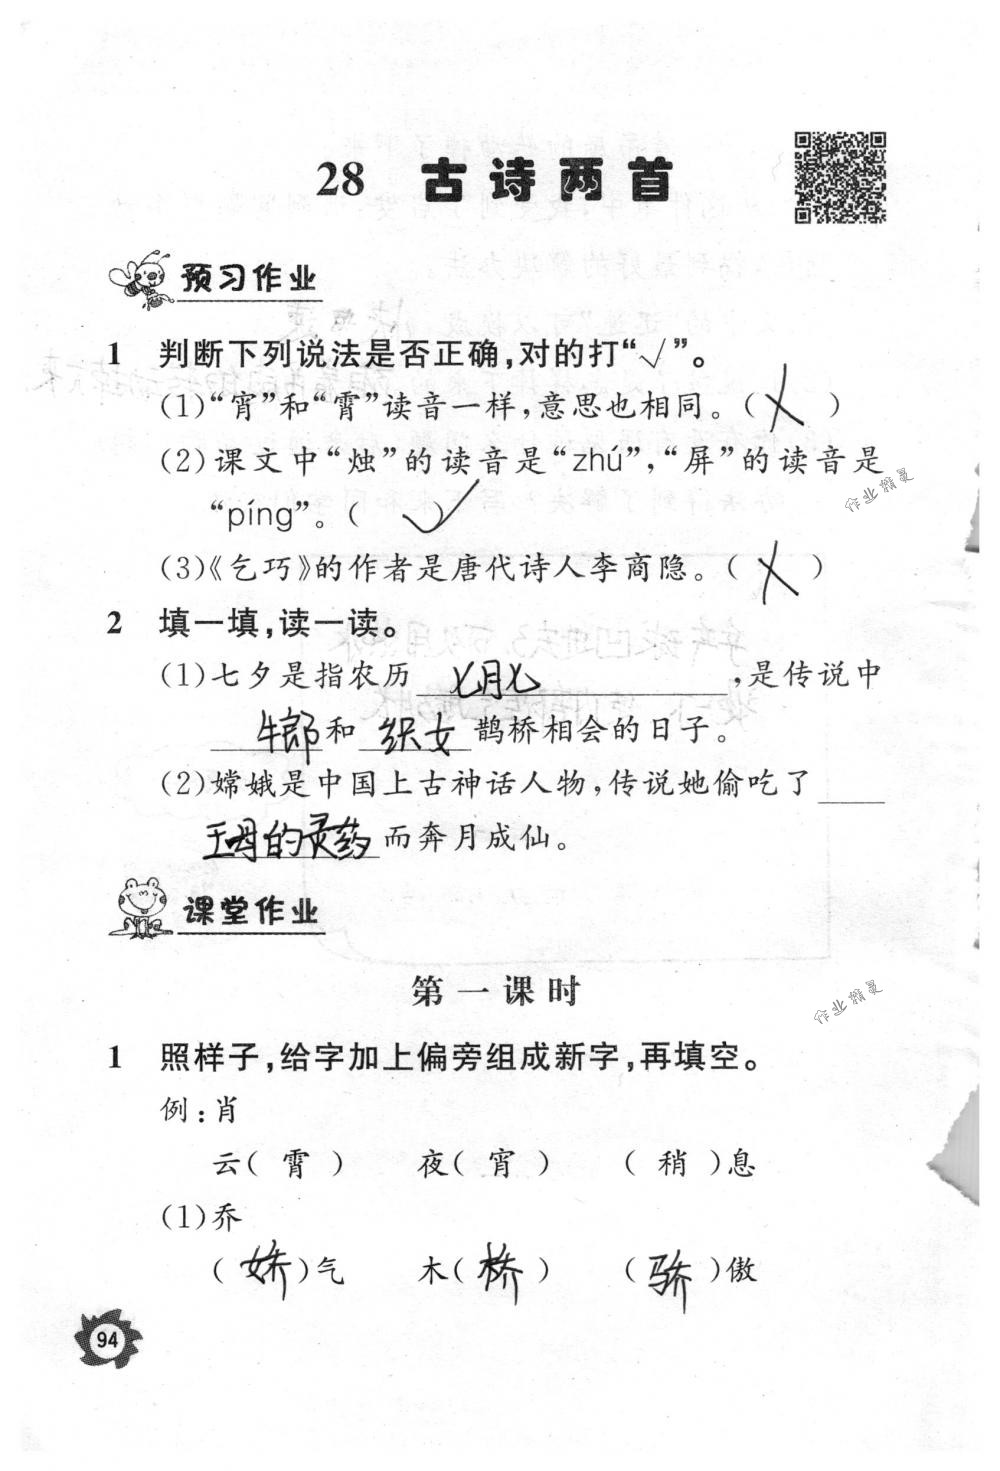 28 古诗两首
预习作业
1 判断下列说法是否正确,对的打“√”。
(1)“宵”和“霄”读音一样,意思也相同。( X )
(2)课文中“烛”的读音是“zhú”,“屏”的读音是
“píng”。( √ )
(3)《乞巧》的作者是唐代诗人李商隐。( X )
2 填一填,读一读。
(1)七夕是指农历 七月七 ,是传说中
牛郎和 织女 鹊桥相会的日子。
(2)嫦娥是中国上古神话人物,传说她偷吃了
王母的灵药而奔月成仙。
作业精灵
课堂作业
第一课时
作业精灵
1 照样子,给字加上偏旁组成新字,再填空。
例:肖
云( 霄 ) 夜( 宵 ) ( 稍 )息
(1)乔
( 娇 )气 木( 桥 ) ( 骄 )傲
94